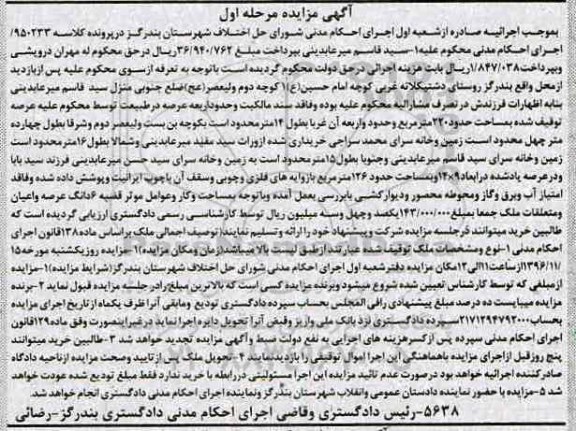 آگهی مزایده مرحله اول
بموجب اجرائیه صادره ازشعبه اول اجرای احکام مدنی شورای حل اختلاف شهرستان بندرگز درپرونده کلاسه ۹۵۰۲۳۳/
اجرای احکام مدنی محکوم علیه۱-سید قاسم میرعابدینی بپرداخت مبلغ ۳۶/۹۴۰/۷۶۲ریال درحق محکوم له مهران درویشی
وبپرداخت۱/۸۴۷/۰۳۸ریال بابت هزینه اجرائی درحق دولت محکوم گردیده است باتوجه به تعرفه ازسوی محکوم علیه پس ازبازدید
ازمحل واقع بندرگز روستای دشتیکلاته غربی کوچه امام حسین(ع)( کوچه دوم ولیعصر(عج)ضلع جنوبی منزل سید قاسم میرعابدینی
بنابه اظهارات فرزندش در تصرف مشارالیه محکوم علیه بوده وفاقد سند مالکیت وحدوداربعه عرصه درطبیعت توسط محکوم علیه عرصه
توقیف شده بمساحت حدود۲۲۰مترمربع وحدود واربعه آن غربا بطول ۱۴مترمحدود است بکوچه بن بست ولیعصر دوم وشرقا بطول چهارده
متر چهل محدود است زمین وخانه سرای محمد سراجی خریداری شده ازوراث سید مفید میرعابدینی وشمالا بطول۱۶مترمحدود است
زمین وخانه سرای سید قاسم میرعابدینی وجنوبا بطول۱۵مترمحدود است به زمین وخانه سرای سید حسن میرعابدینی فرزند سید بابا
ودرعرصه یادشده درابعاد۹×۱۴وبمساحت حدود ۱۲۶مترمربع بازوایه های فلزی وچوبی وسقف آن باچوب ایرانیت وپوشش داده شده وفاقد
امتیاز آب وبرق وگاز ومحوطه محصور ودیوارکشی بابررسی بعمل آمده وباتوجه به مساحت وکار وعوامل موثر قضیه ۶دانگ عرصه واعیان
ومتعلقات ملک جمعا بمبلغ۱۴۳/۰۰۰/۰۰۰یکصد وچهل وسه میلیون ریال توسط کارشناسی رسمی دادگستری ارزیابی گردیده است که
طالبین خرید میتوانند درجلسه مزایده شرکت وپیشنهاد خود را ارائه وتسلیم نمایند(توصیف اجمالی ملک براساس ماده۱۳۸قانون اجرای
احکام مدنی ۱-نوع ومشخصات ملک توقیف شده عبارتند ازطبق لیست بالا میباشد(زمان ومکان مزایده)۱-مزایده روزیکشنبه مورخه۱۵
/۱۳۹۶/۱۱ازساعت۱۱الی۱۲مکان مزایده دفترشعبه اول اجرای احکام مدنی شورای حل اختلاف شهرستان بندرگز(شرایط مزایده)۱-مزایده
ازمبلغی که توسط کارشناس تعیین شده شروع میشود وبرنده مزایده کسی است که بالاترین مبلغ رادر جلسه مزایده قبول نماید ۲-برنده
مزایده میبایست ده درصد مبلغ پیشنهادی رافی المجلس بحساب سپرده دادگستری تودیع ومابقی آنرا ظرف یکماه ازتاریخ اجرای مزایده
بحساب۲۱۷۱۲۹۴۷۹۲۰۰۰سپرده دادگستری نزد بانک ملی واریز وقبض آنرا تحویل دایره اجرا نماید درغیراینصورت وفق ماده۱۲۹قانون
اجرای احکام مدنی سپرده پس ازکسرهزینه های اجرایی به نفع دولت ضبط وآگهی مزایده تجدید خواهد شد ۳-طالبین خرید میتوانند
پنج روزقبل ازاجرای مزایده باهماهنگی این اجرا اموال توقیفی را بازدیدنمایند ۴-تحویل ملک پس از تایید وصحت مزایده ازناحیه دادگاه
صادرکننده اجرائیه خواهد بود درصورت عدم تائید مزایده این اجرا مسئولیتی دررابطه با خرید ندارد فقط مبلغ تودیع شده عودت خواهد
شد ۵-مزایده با حضور نماینده دادستان عمومی وانقلاب شهرستان بندرگز ونماینده اجرای احکام مدنی دادگستری انجام خواهد شد.
۵۶۳۸-رئیس دادگستری وقاضی اجرای احکام مدنی دادگستری بندرگز-رضائی